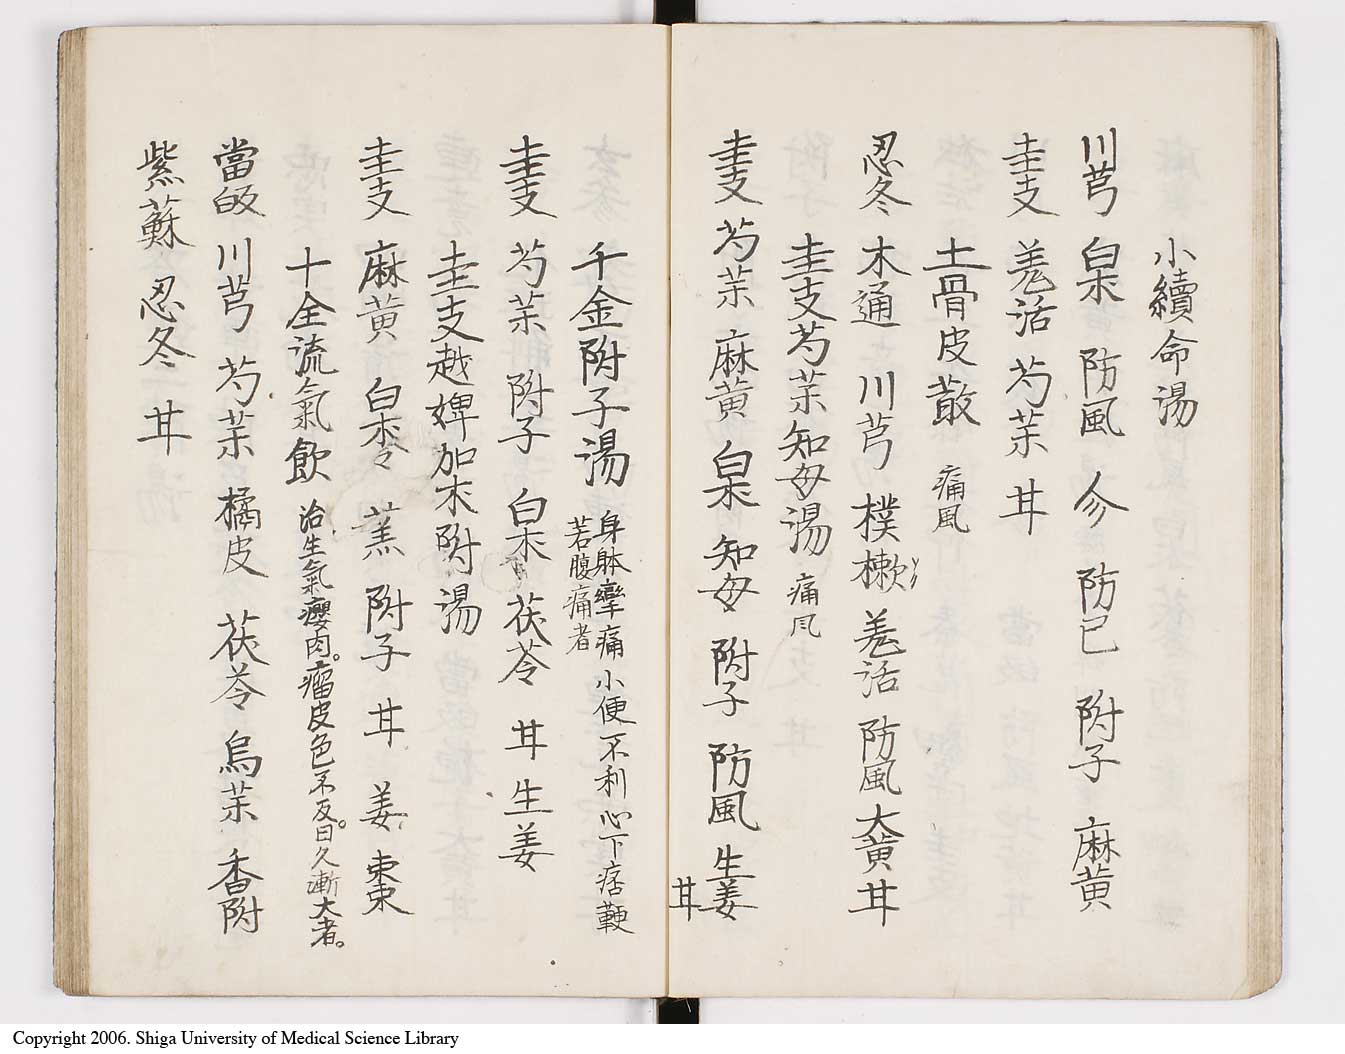 小續命湯
川芎 白朮 防風 㕥 防已 附子 麻黄
圭支 羗活 芍茱 甘
土骨皮散 痛風
忍冬 木通 川芎 樸樕 羗活 防風 大黄 甘
圭支芍茱知母湯 痛风
圭支 芍茱 麻黄 白朮 知母 附子 防風 生姜
甘
千金附子湯 身躰攣痛小便不利心下痞鞕
若腹痛者
圭支 芍茱 附子 白朮 茯苓 甘 生姜
圭支越婢加朮附湯
圭支 麻黄 白朮 附子 甘 姜 棗
十全流氣飲 治生氣癭肉。瘤皮色不反。日久漸大者。
當皈 川芎 芍茱 橘皮 茯苓 烏茱 香附
紫蘇 忍冬 甘
Copyright 2006. Shiga University of Medical Science Library